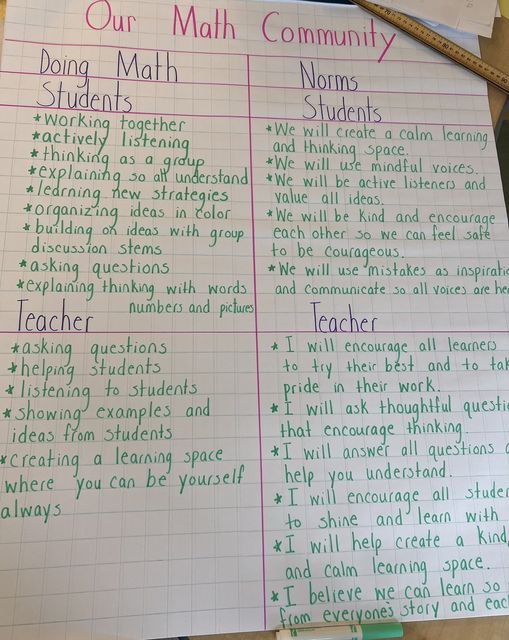 Our Math Community
Doing Math
Students
*working together
*actively listening
*thinking as a group
*explaining so all understand
*learning new strategies
*organizing ideas in color
*building on ideas with group
discussion stems
*asking questions
*explaining thinking with words
numbers and pictures
Teacher
*asking questions
*helping students
*listening to students
*showing examples and
ideas from students
*creating a learning space
where you can be yourself
always
Norms
Students
*We will create a calm learning
and thinking space.
*We will use mindful voices.
*We will be active listeners and
value all ideas.
*We will be kind and encourage
each other so we can feel safe
to be courageous.
*We will use mistakes as inspirati
and communicate so all voices are hea
Teacher
*I will encourage all learners
to try their best and to tak
pride in their work.
*I will ask thoughtful questi
that encourage thinking.
*I will answer all questions
help you understand.
*I will encourage all studen
to shine and learn with
*I will help create a kind,
and calm learning space.
*I believe we can learn so
from everyone's story and eac